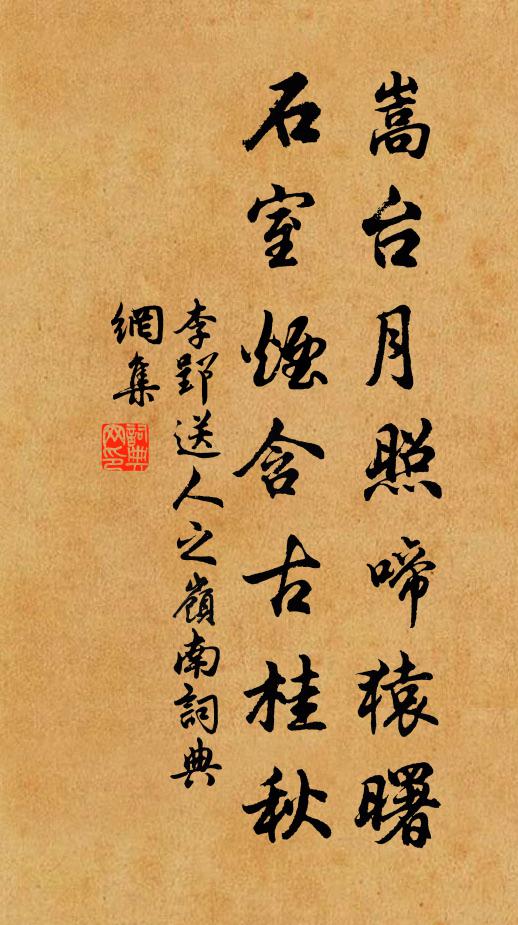 嵩台月照啼猿曙
石室煙含古桂秋
李郢送人之嶺南詞典
網集
詞典網印